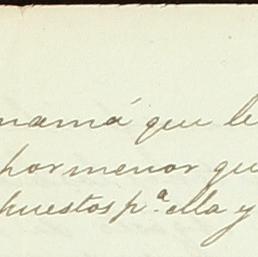 mamá que le
pormenor qu
puestos p.ª ella y